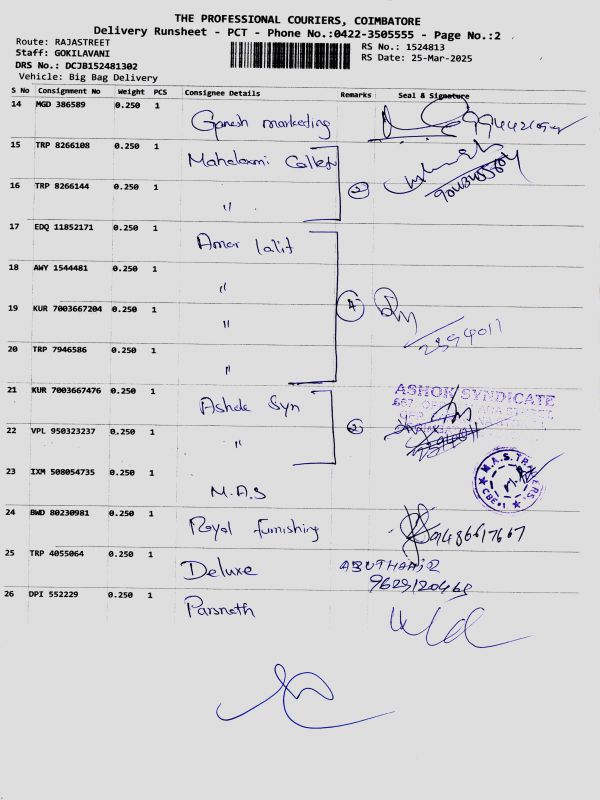 THE PROFESSIONAL COURIERS, COIMBATORE
Delivery Runsheet - PCT - Phone No.:0422-3505555 - Page No.:2
Route: RAJASTREET
RS No.: 1524813
Staff: GOKILAVANI
RS Date: 25-Mar-2025
DRS No.: DCJB152481302
Vehicle: Big Bag Delivery
S No Consignment No Weight PCS Consignee Details Remarks Seal & Signature
14 MGD 386589 0.250 1 Ganesh marketing
15 TRP 8266108 0.250 1 Mahalaxmi
16 TRP 8266144 0.250 1 " 2
17 EDQ 11852171 0.250 1 Amar lalit
18 AWY 1544481 0.250 1 "
19 KUR 7003667204 0.250 1 " 4
20 TRP 7946586 0.250 1 "
21 KUR 7003667476 0.250 1 Ashok Syn ASHOK SYNDICATE
22 VPL 950323237 0.250 1 " 2
23 IXM 508054735 0.250 1 M.A.S M.A.S. TRADERS CBE-1
24 BWD 80230981 0.250 1 Royal furnishing
25 TRP 4055064 0.250 1 Deluxe
9629120468
26 DPI 552229 0.250 1 Parsnath